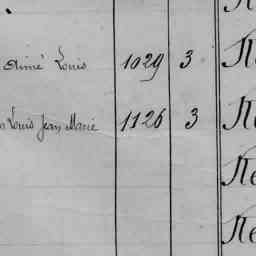 Aimé Louis 1029 3
Louis Jean Marie 1126 3